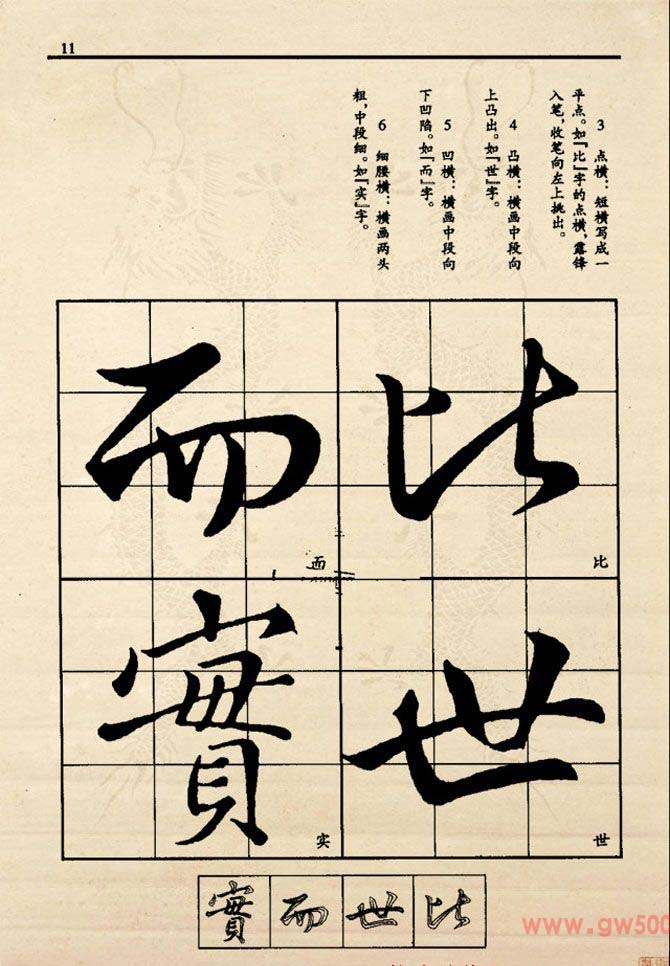 11
3 点横：短横写成一
平点。如『比』字的点横，露锋
入笔，收笔向左上挑出。
4 凸横：横画中段向
上凸出。如『世』字。
5 凹横：横画中段向
下凹陷。如『而』字。
6 细腰横：横画两头
粗，中段细。如『实』字。
比
比
世
世
而
而
實
实
實而世比
www.gw500